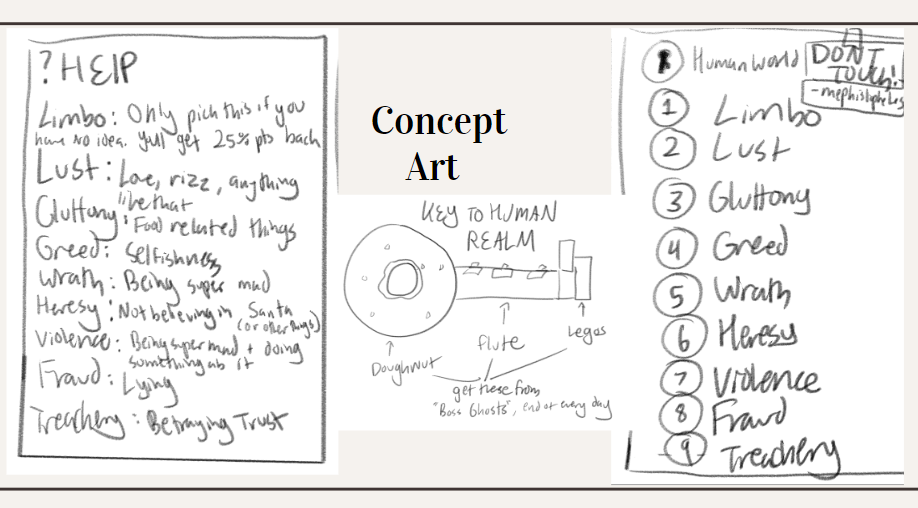 ? HElP
Limbo: Only pick this if you
have no idea. Yull get 25% pts back
Lust: Love, rizz, anything
like that
Gluttony: Food related things
Greed: Selfishness
Wrath: Being super mad
Heresy: Not believing in Santa
(or other things)
Violence: Being super mad + doing
something ab it
Fraud: Lying
Treachery: Betraying Trust
Concept
Art
KEY TO HUMAN
REALM
Doughnut
flute
Legos
get these from
"Boss Ghosts", end of every day
Human World
DON'T
TOUCH!
-mephistopheles
1 Limbo
2 Lust
3 Gluttony
4 Greed
5 Wrath
6 Heresy
7 Violence
8 Fraud
9 Treachery